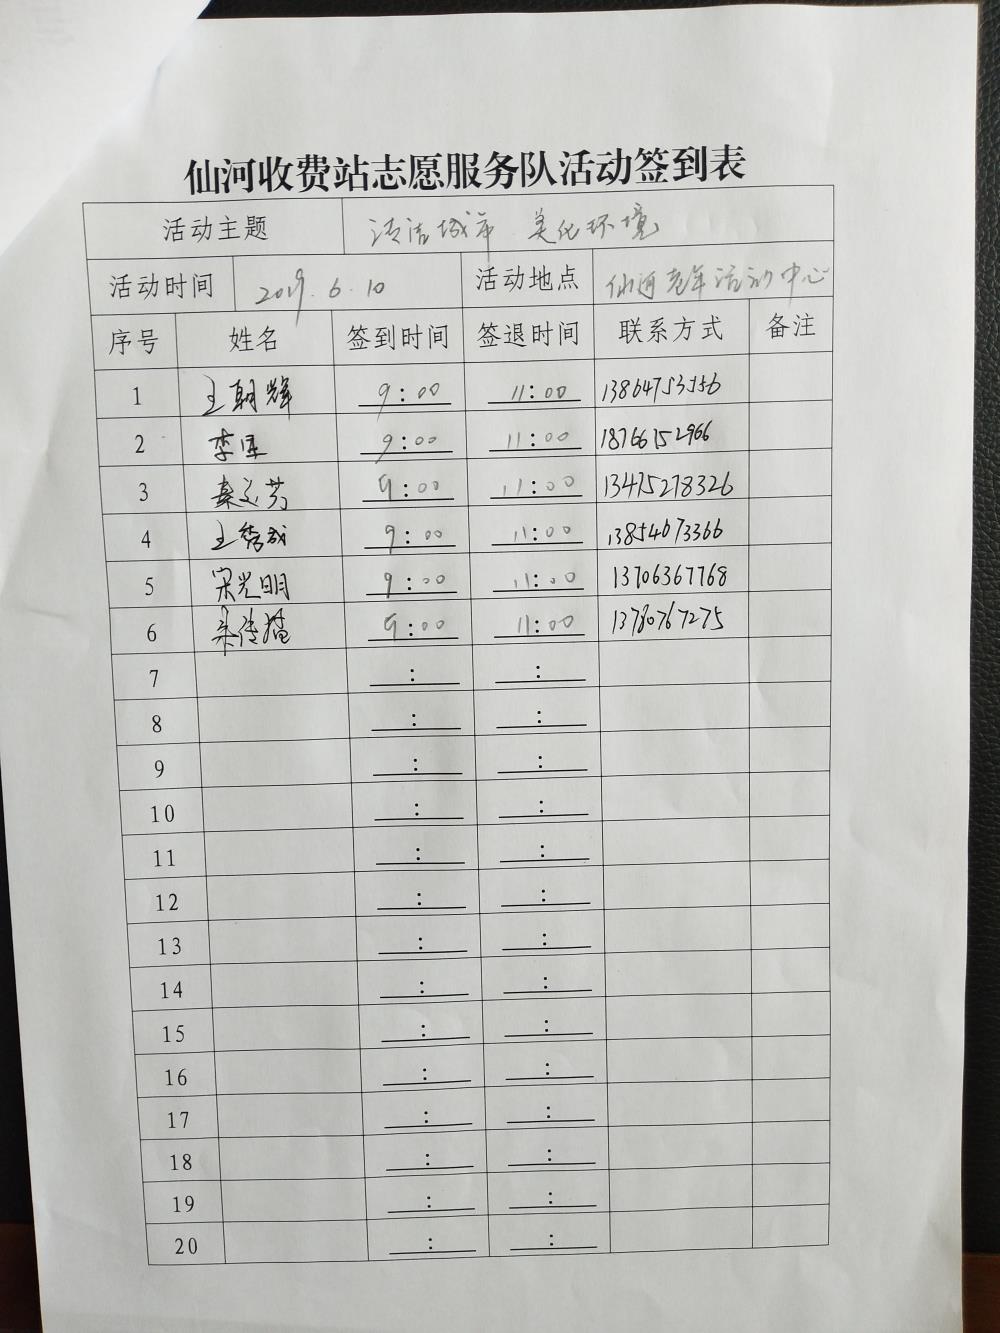 仙河收费站志愿服务队活动签到表
活动主题 清洁城市 美化环境
活动时间 2019.6.10 活动地点 仙河老年活动中心
序号 姓名 签到时间 签退时间 联系方式 备注
1 王朝辉 9:00 11:00 13864753556
2 李军 9:00 11:00 18766152966
3 秦文芳 9:00 11:00 13475278326
4 王秀成 9:00 11:00 13854673366
5 宋光明 9:00 11:00 13706367768
6 9:00 11:00 13780767275
7 : :
8 : :
9 : :
10 : :
11 : :
12 : :
13 : :
14 : :
15 : :
16 : :
17 : :
18 : :
19 : :
20 : :